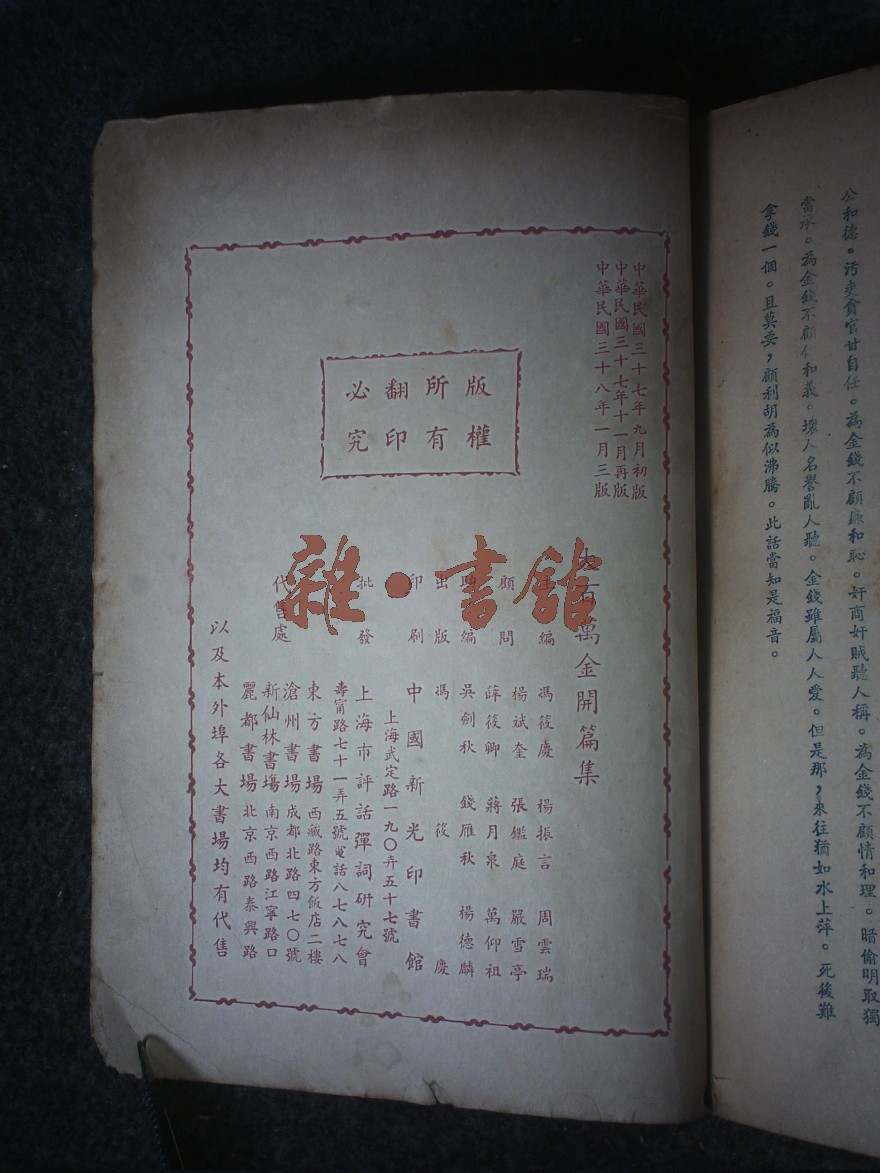 公和德。污吏貪官甘自任。為金錢不顧廉和恥。奸商奸賊聽人稱。為金錢不顧情和理。暗偷明取獨
當 。為金錢不顧仁和義。壞人名譽亂人聽。金錢雖屬人人愛。但是那,來往猶如水上萍。死後難
拿錢一個。且莫要,顧利胡為似沸騰。此話當知是福音。
中華民國三十七年九月初版
中華民國三十七年十一月再版
中華民國三十八年一月三版
版權
所有
翻印
必究
百萬金開篇集
編 馮筱慶 楊振言 周雲瑞
楊斌奎 張鑑庭 嚴雪亭
顧問 薛筱卿 蔣月泉 萬仰祖
編 吳劍秋 錢雁秋 楊德麟
出版 馮筱慶
印刷 中國新光印書館
上海武定路一九〇弄五十七號
批發 上海市評話彈詞研究會
壽甯路七十一弄五號電話八七八七八
代售處
東方書場 西藏路東方飯店二樓
滄州書場 成都北路四七〇號
新仙林書場 南京西路江寧路口
麗都書場 北京西路泰興路
以及本外埠各大書場均有代售
雜·書館